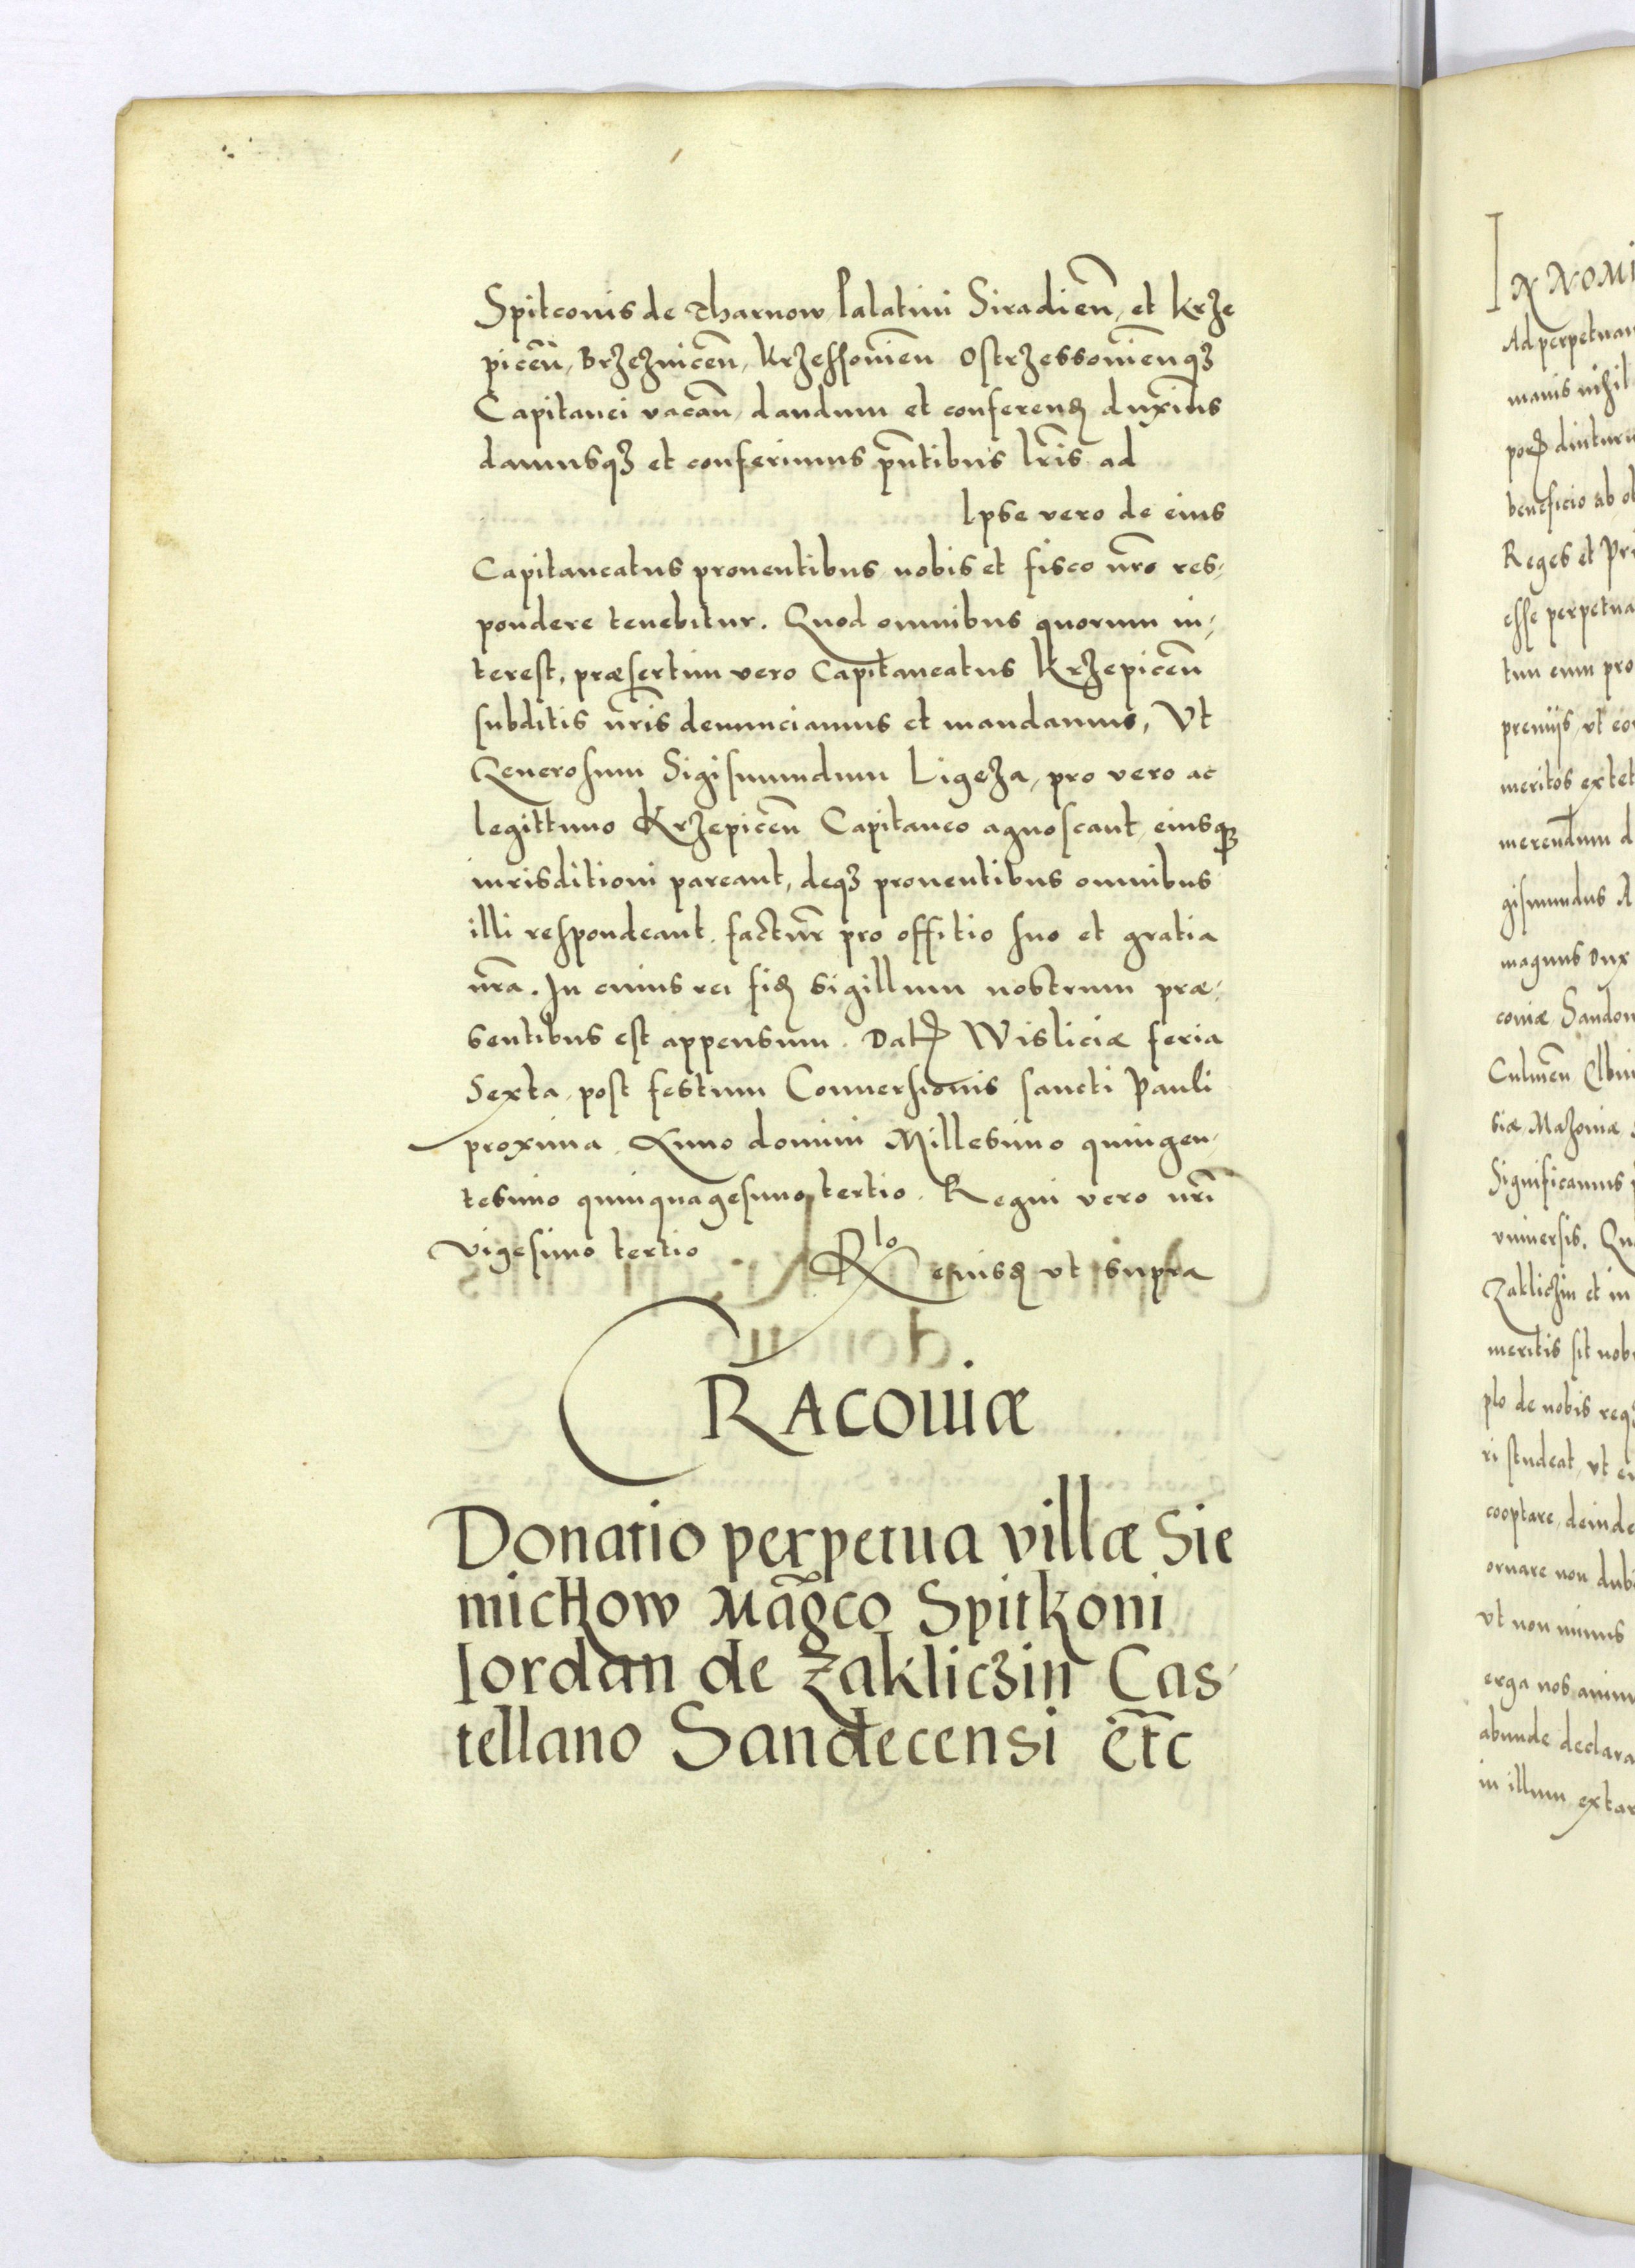 Spitconis de Tharnow Palatini Siradien̄, et Krze
picen̄, Brzeznicen̄, Krzessonien̄ Ostrzessonien̄qꝫ
Capitanei vacan̄, dandum et conferenꝺ duxim̄s
damusqꝫ et conferimus p̄ntibus lr̄is ad
Ipse vero de eius
Capitaneatus prouentibus nobis et fisco nr̄o res,
pondere tenebitur. Quod omnibus quorum in,
terest, præsertim vero Capitaneatus Krzepicen̄
subditis nr̄is denunciamus et mandamus, Vt
Generosum Sigismundum Ligeza, pro vero ac
legittimo Krzepicen̄ Capitaneo agnoscant, eiusqꝫ
iurisditioni pareant, deqꝫ prouentibus omnibus
illi respondeant. factur̄ pro offitio suo et gratia
nr̄a. In cuius rei fiꝺ sigillum nostrum præ,
sentibus est appensum. Datꝭ Wisliciæ feria
Sexta, post festum Conuersionis sancti Pauli
proxima. Anno domini Millesimo quingen,
tesimo quinquagesimo tertio. Regni vero nr̄i
vigesimo tertio
Rlo eiusꝺ vt supra
CRACOUIÆ
Donatio perpetua villæ Sie
michow Mãgco Spitkoni
Iordan de Zakliczin Cas,
tellano Sandecensi et̄c
In nomi
Ad perpetuam
manis nihil
beneficio ab ob
Reges et Pri
esse perpetua
tum eum pro
premijs, vt eor
meritos extet
merendum d
gismundus A
magnus Dux
coniæ Sandom
Culmen̄ Elbin
siæ, Mazoniæ
Significamus
vniuersis. Qu
Zakliczin et in
meritis sit nobi
plo de nobis reqꝫ
ri studeat, vt
cooptare, deinde
ornare non dubi
vt non minus
erga nos anim
abunde declara
in illum extar